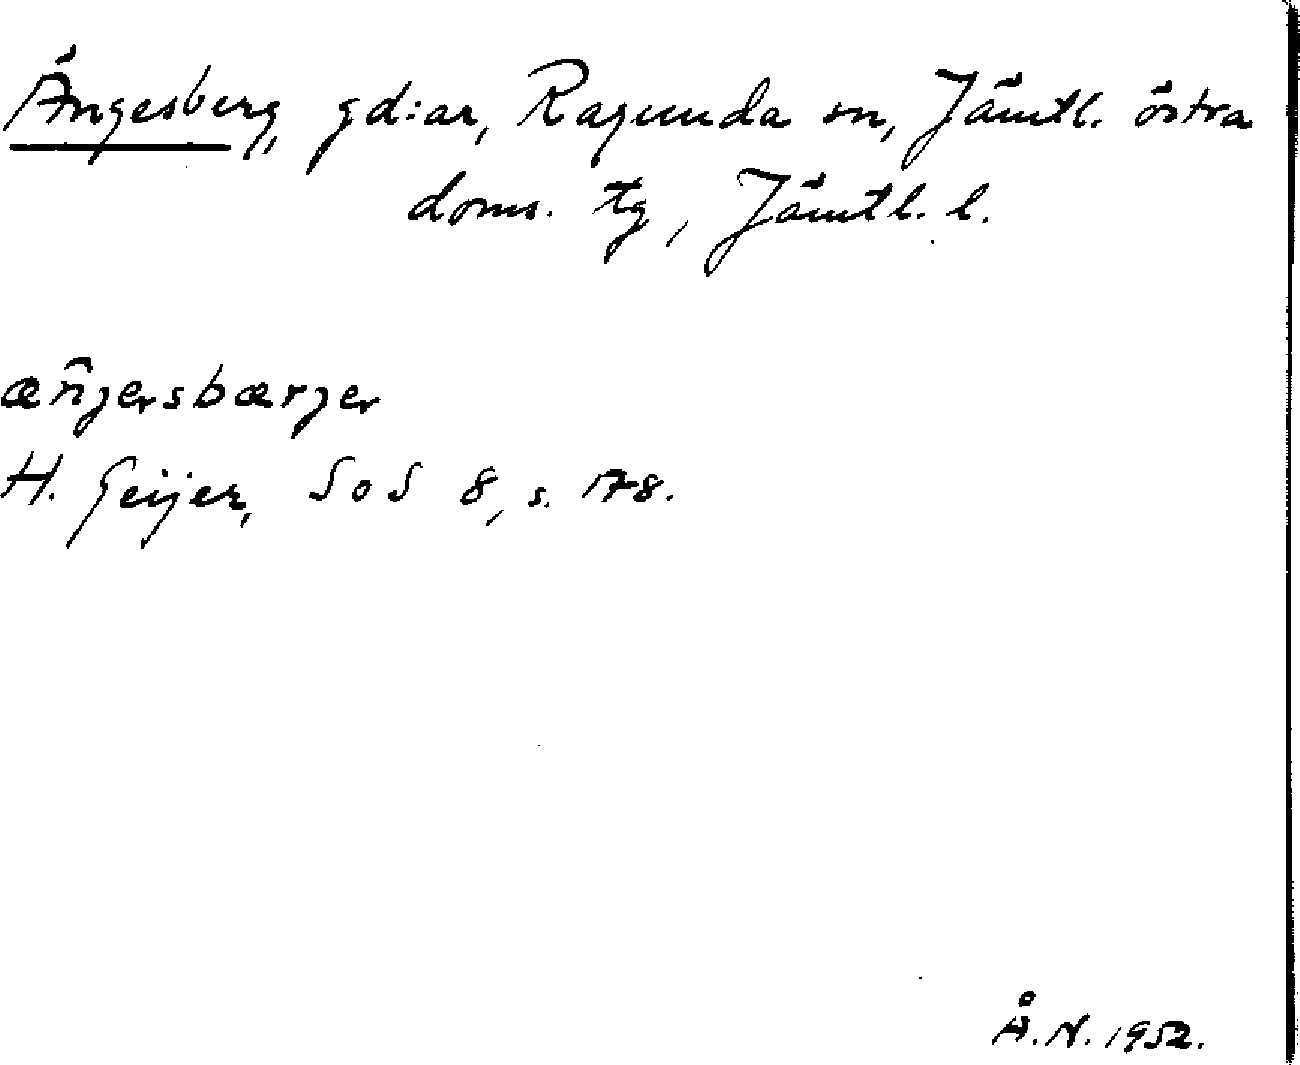 Ängesberg, gd:ar, Ragunda sn, Jämtl. östra
doms. tg, Jämtl. l.
æn̂jersbærjer
H. Geijer, SoS 8, s. 178.
Å.N. 1952.